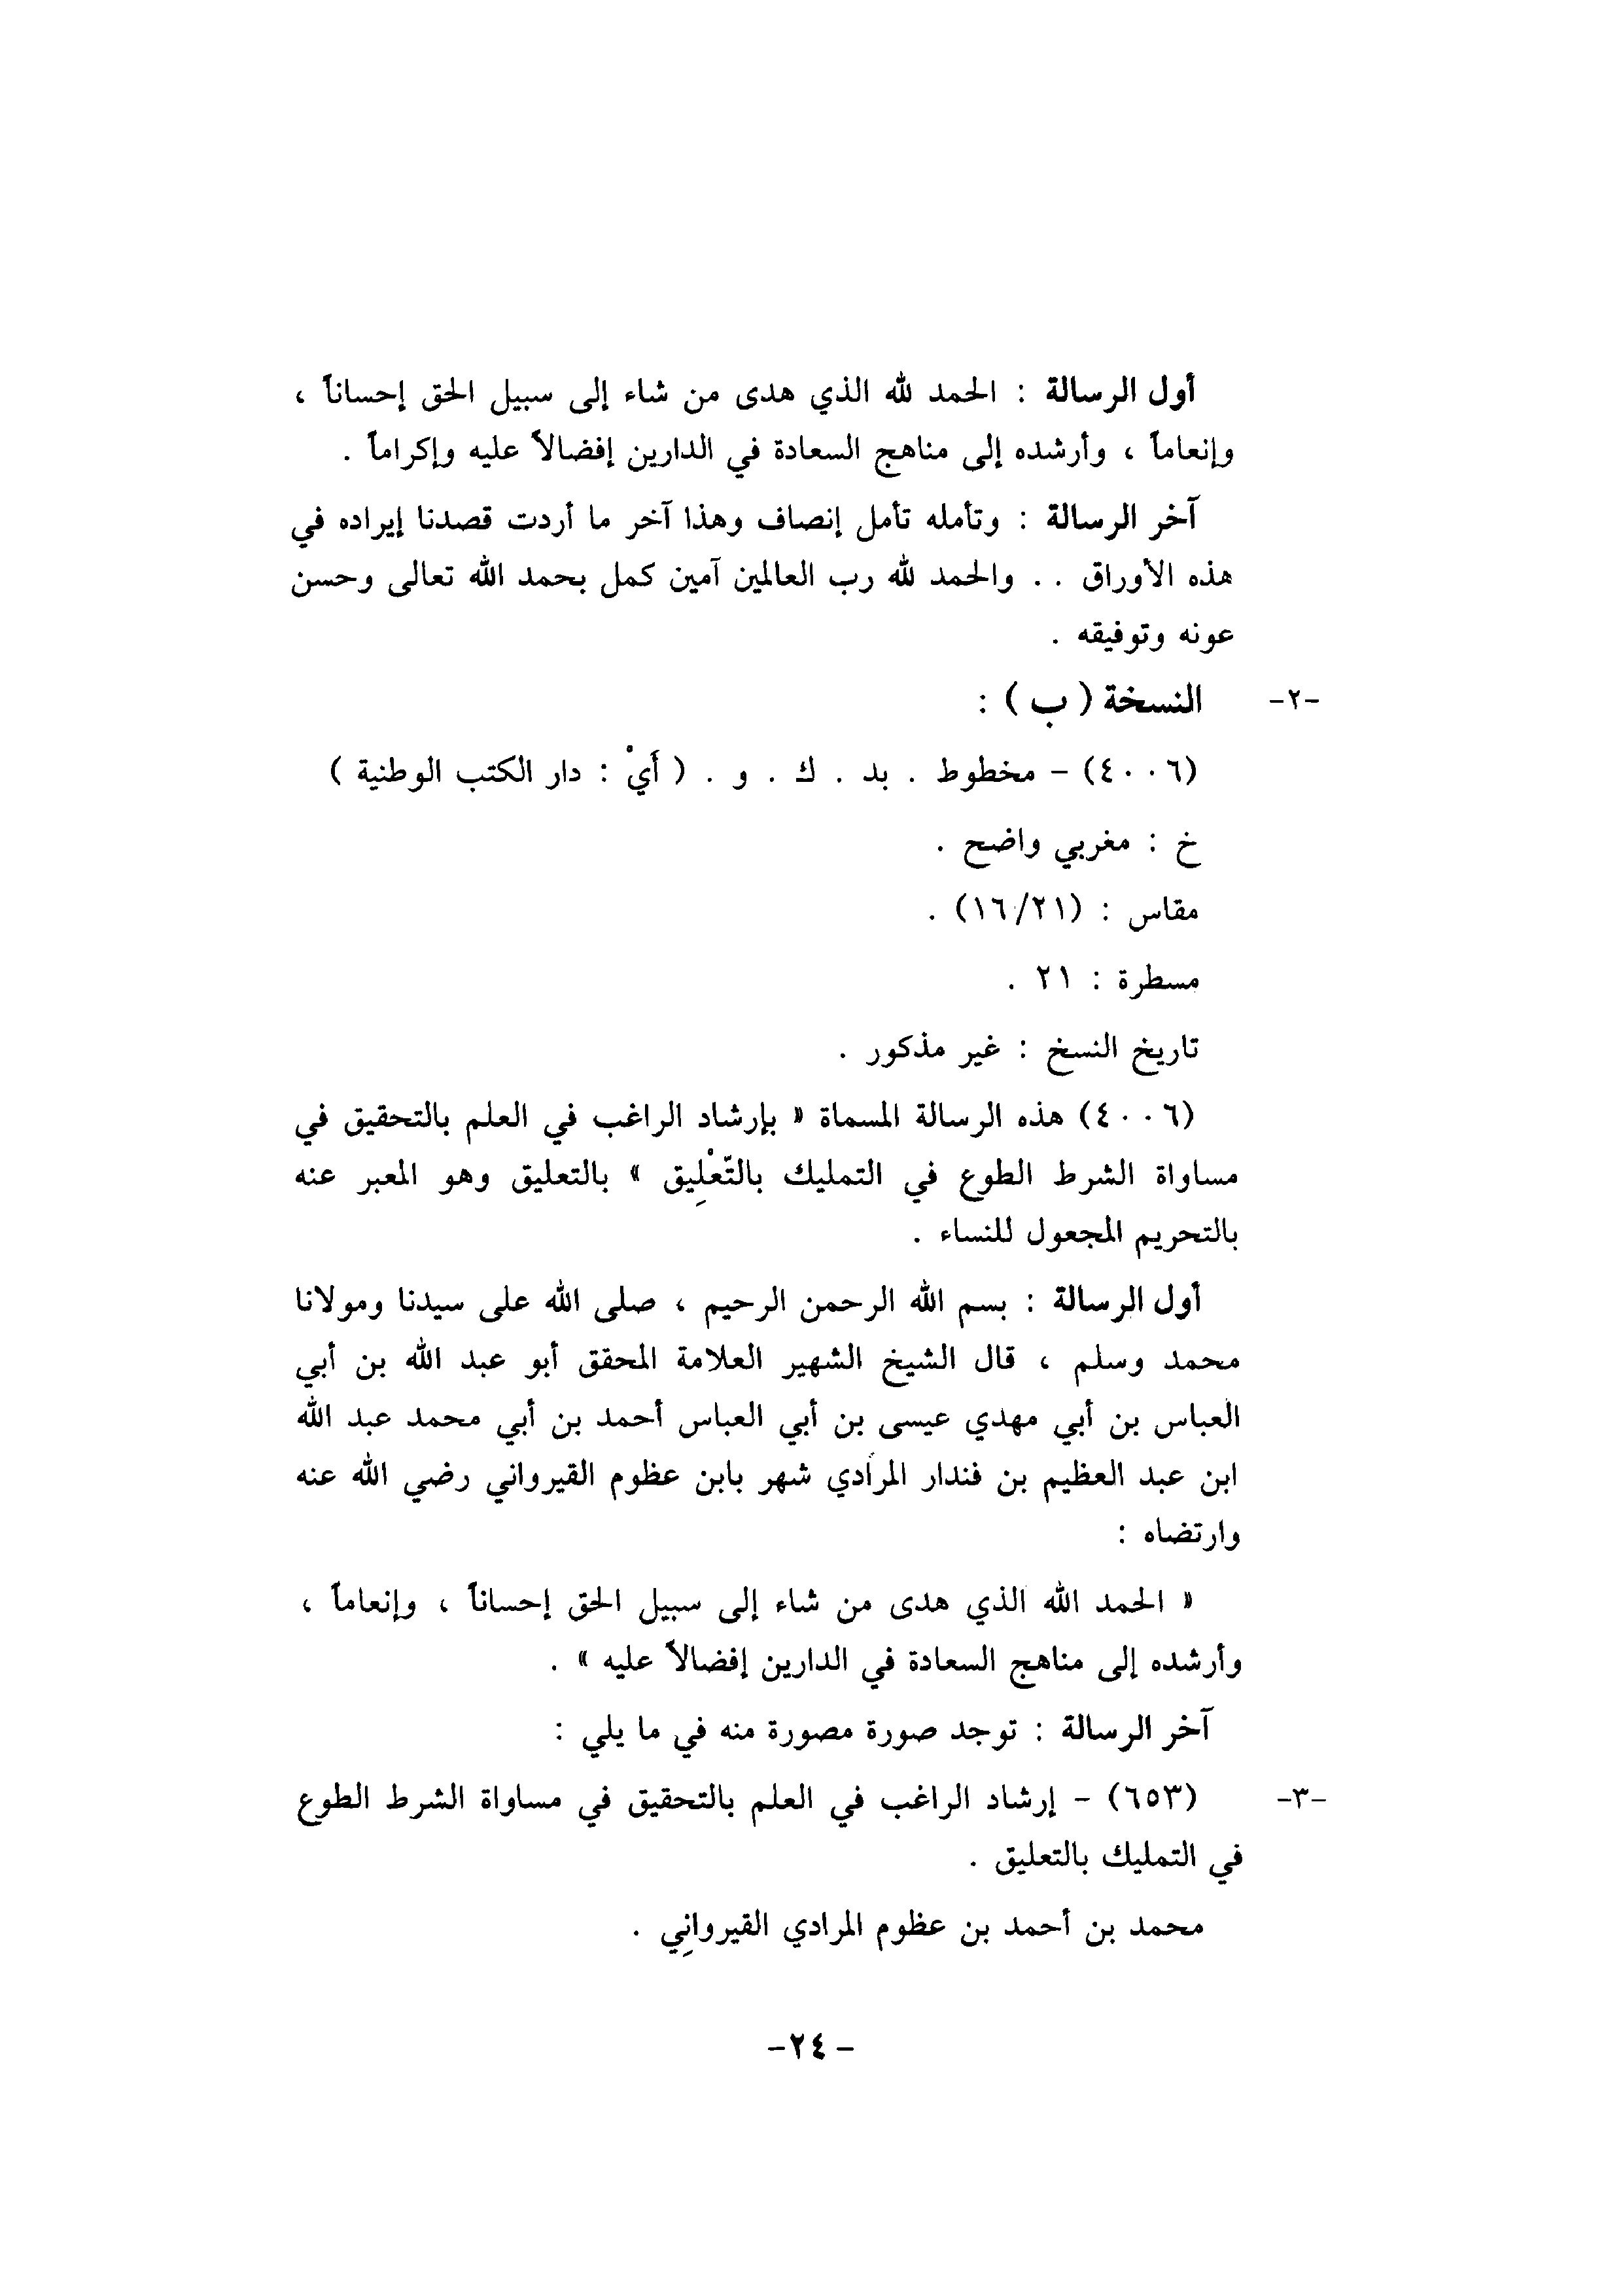 أول الرسالة : الحمد لله الذي هدى من شاء إلى سبيل الحق إحساناً ،
وإنعاماً ، وأرشده إلى مناهج السعادة في الدارين إفضالاً عليه وإكراماً .
آخر الرسالة : وتأمله تأمل إنصاف وهذا آخر ما أردت قصدنا إيراده في
هذه الأوراق . . والحمد لله رب العالمين آمين كمل بحمد الله تعالى وحسن
عونه وتوفيقه .
-٢- النسخة ( ب ) :
(٤٠٠٦) - مخطوط . بد . ك . و . ( أيْ : دار الكتب الوطنية )
خ : مغربي واضح .
مقاس : (١٦/٢١) .
مسطرة : ٢١ .
تاريخ النسخ : غير مذكور .
(٤٠٠٦) هذه الرسالة المسماة « بإرشاد الراغب في العلم بالتحقيق في
مساواة الشرط الطوع في التمليك بالتّعْلِيق » بالتعليق وهو المعبر عنه
بالتحريم المجعول للنساء .
أول الرسالة : بسم الله الرحمن الرحيم ، صلى الله على سيدنا ومولانا
محمد وسلم ، قال الشيخ الشهير العلامة المحقق أبو عبد الله بن أبي
العباس بن أبي مهدي عيسى بن أبي العباس أحمد بن أبي محمد عبد الله
ابن عبد العظيم بن فندار المرادي شهر بابن عظوم القيرواني رضي الله عنه
وارتضاه :
« الحمد الله الذي هدى من شاء إلى سبيل الحق إحساناً ، وإنعاماً ،
وأرشده إلى مناهج السعادة في الدارين إفضالاً عليه » .
آخر الرسالة : توجد صورة مصورة منه في ما يلي :
-٣- (٦٥٣) - إرشاد الراغب في العلم بالتحقيق في مساواة الشرط الطوع
في التمليك بالتعليق .
محمد بن أحمد بن عظوم المرادي القيروانِي .
-٢٤-